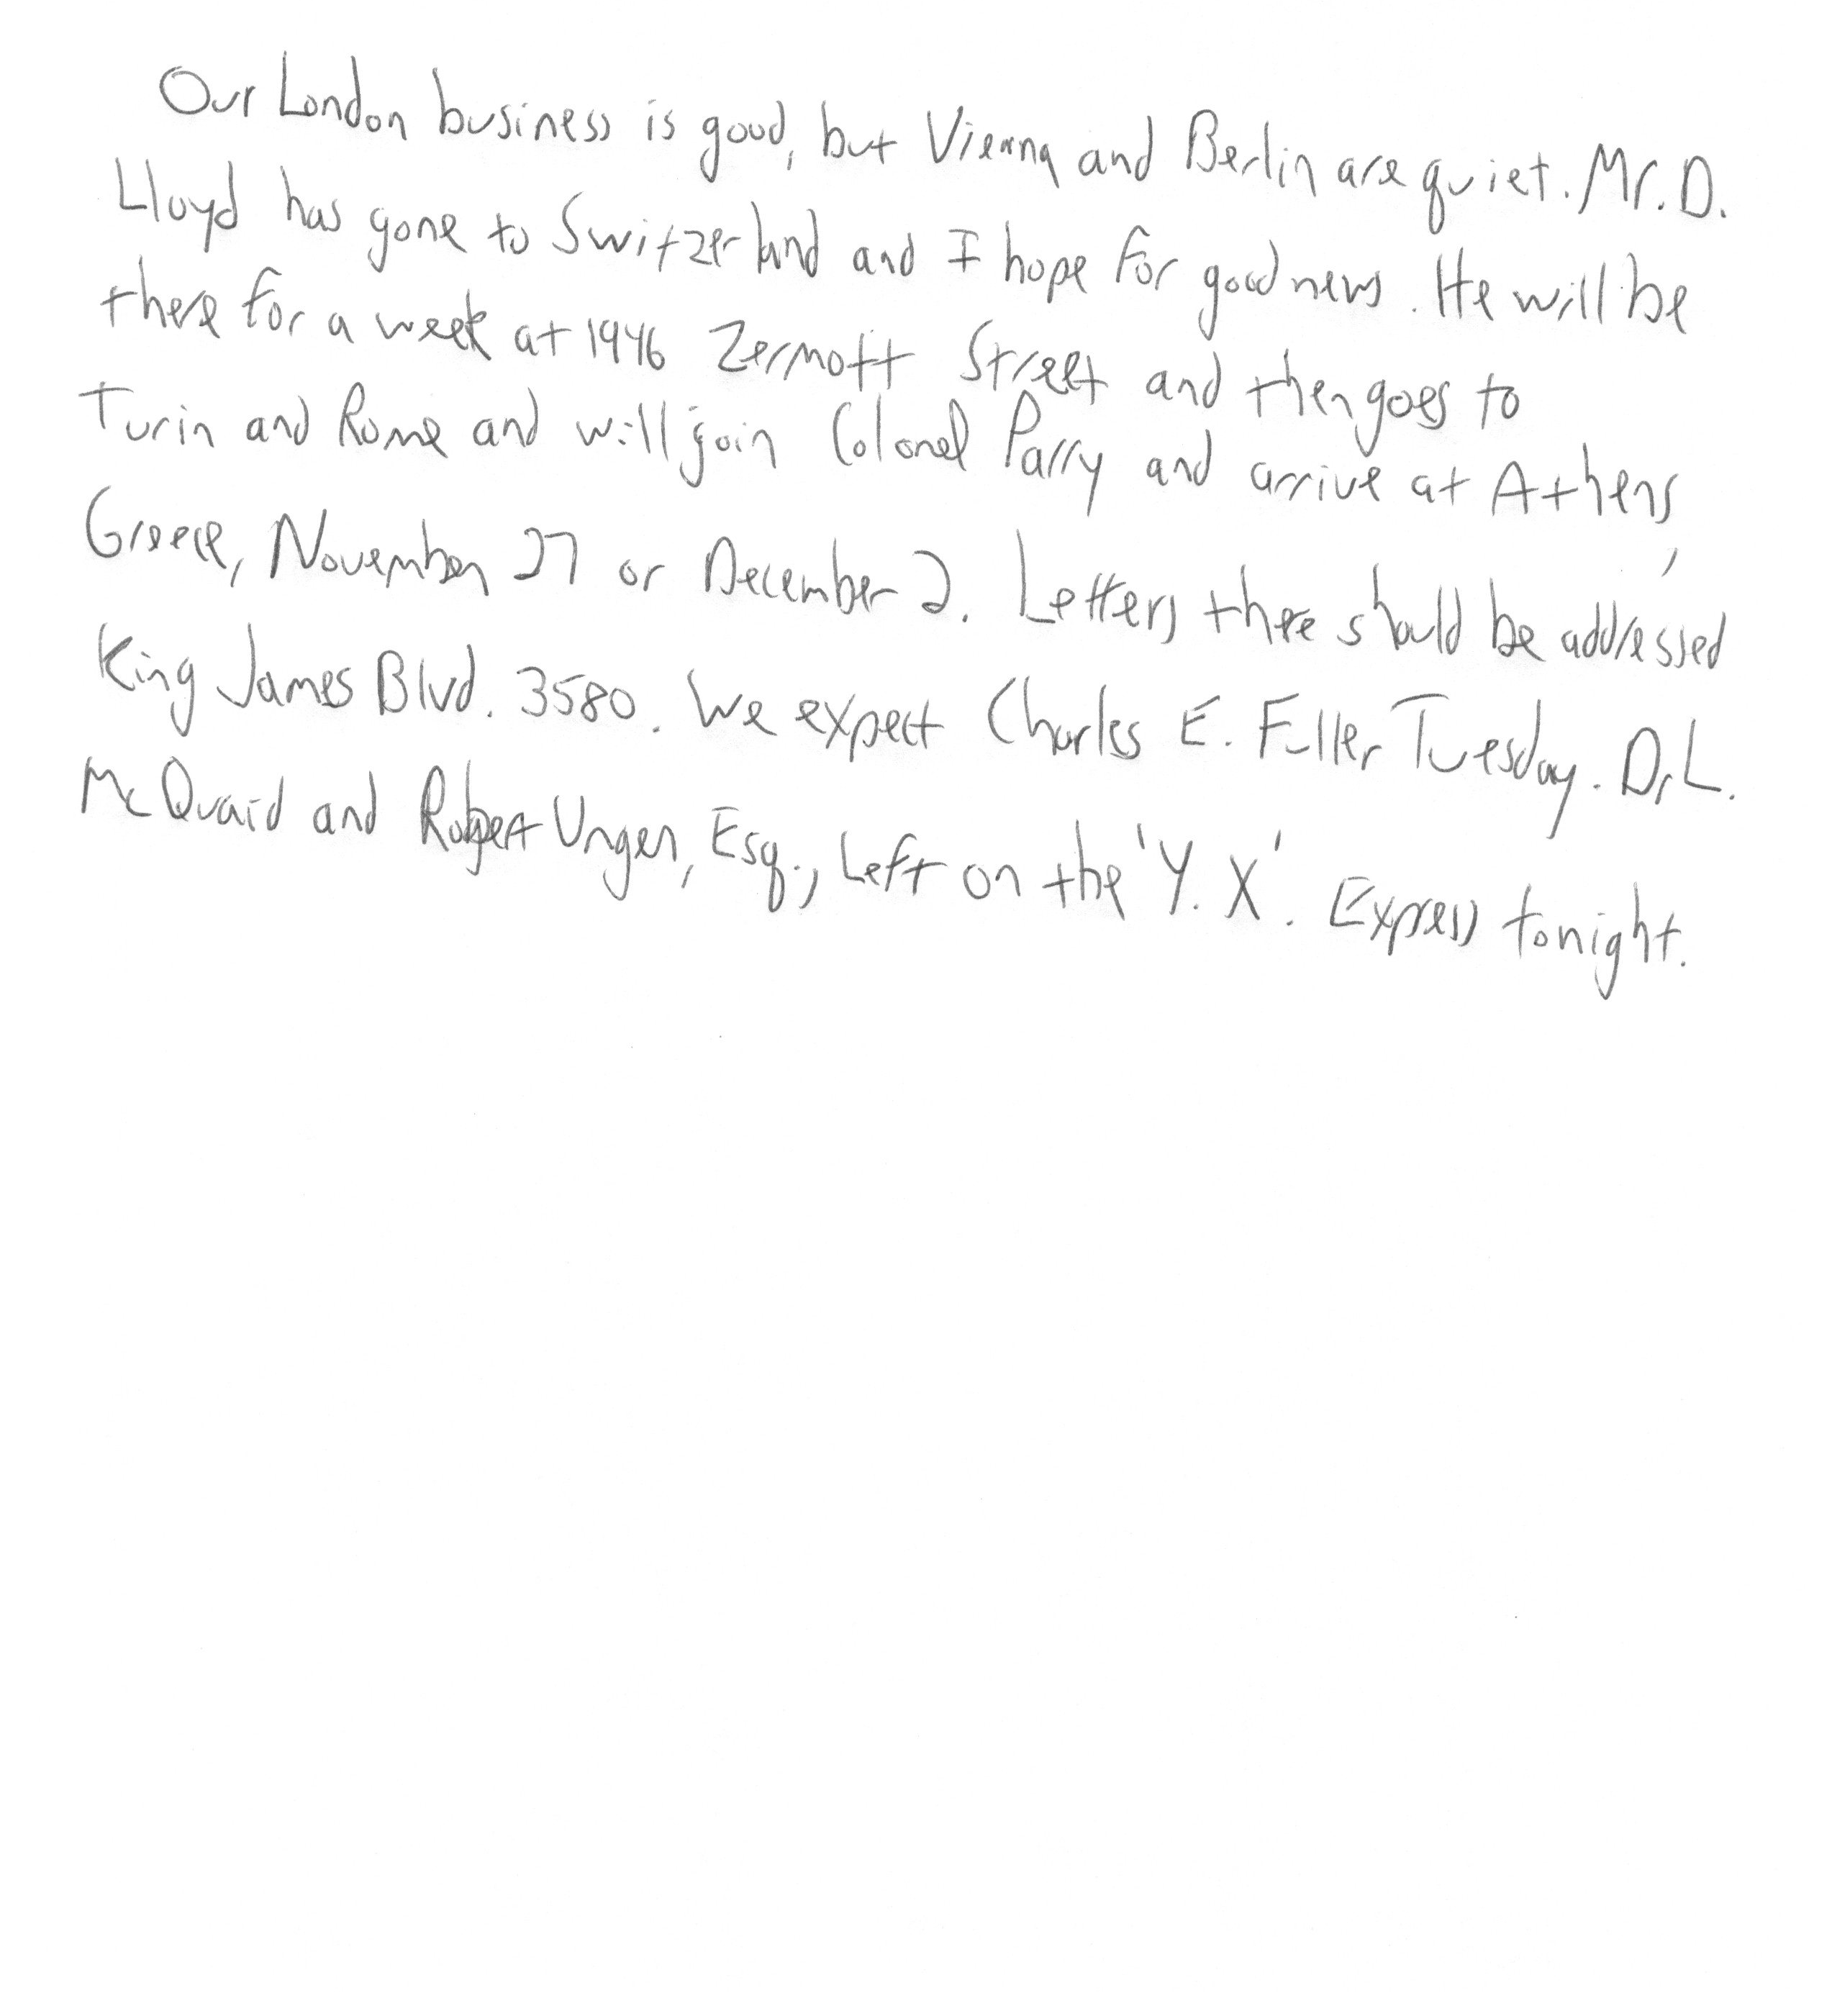 Our London business is good, but Vienna and Berlin are quiet. Mr. D.
Lloyd has gone to Switzerland and I hope for good news. He will be
there for a week at 1946 Zermott Street and then goes to
Turin and Rome and will join Colonel Parry and arrive at Athens,
Greece, November 27 or December 2. Letters there should be addressed
King James Blvd. 3580. We expect Charles E. Fuller Tuesday. Dr L.
McQuaid and Robert Unger, Esq., Left on the 'Y. X'. Express tonight.